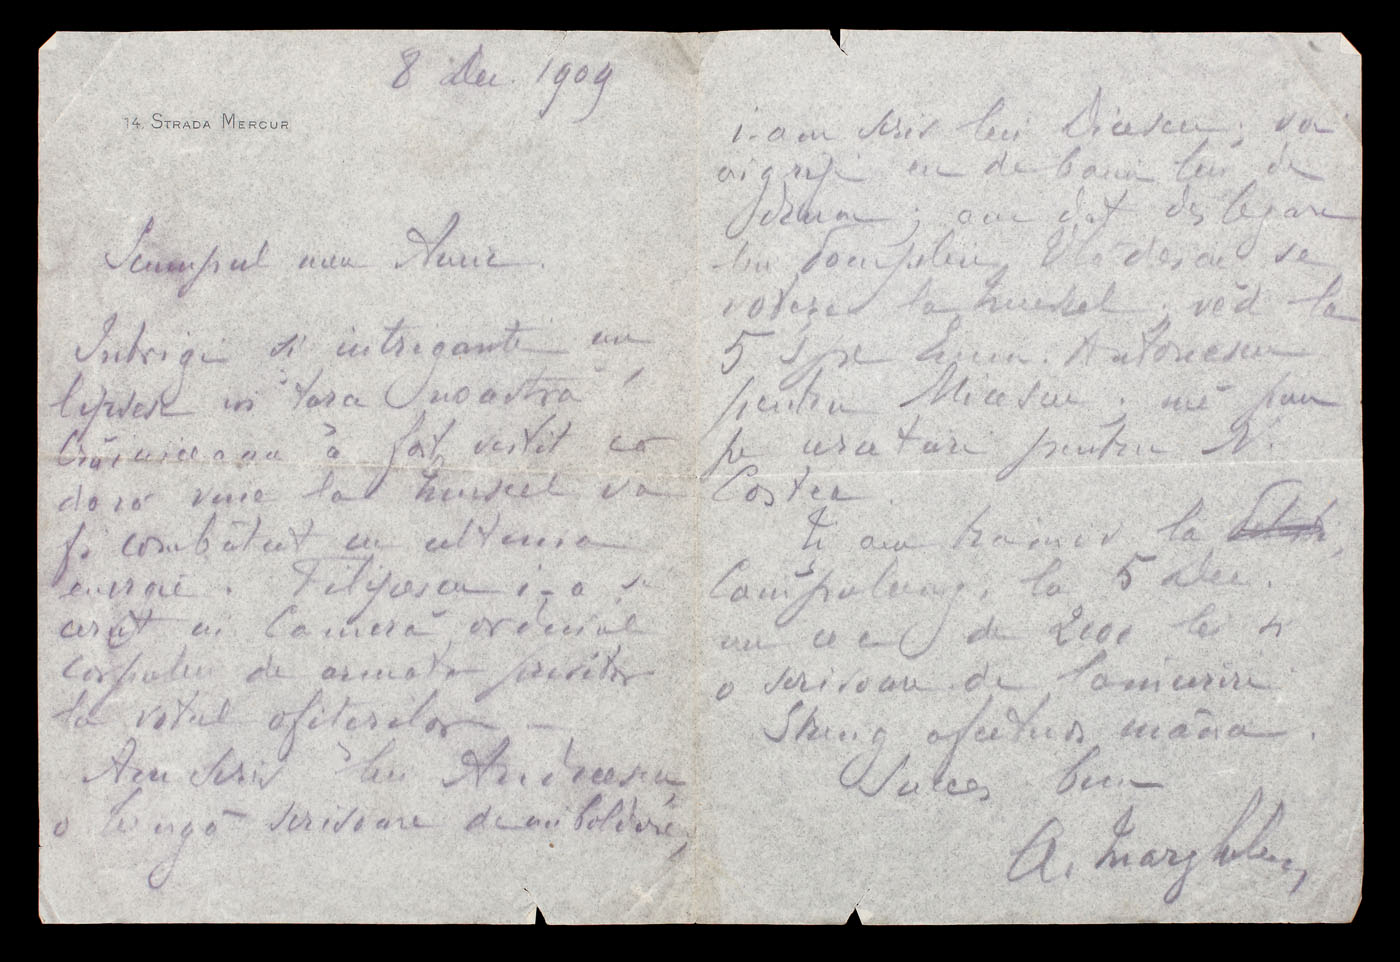 8 Dec. 1909
14, STRADA MERCUR
Scumpul meu
Intrigi si intriganti nu
lipsesc in tara noastră,
a fost vestit ca
daca vine la Muscel va
fi combătut cu ultima
energie. Filipescu i-a si
cerut in Cameră ordinul
corpului de armata privitor
la votul ofiterilor —
Am scris lui Andreescu
o lungă scrisoare de imboldire,
i-am scris lui Dicescu; va
ingriji cu de banii lui de
drum; am dat deslegare
lui Vlădescu se
voteze la Muscel; văd la
5 Spre Em. Antonescu
pentru Micescu; mĕ pun
pe aratari pentru N.
Costea.
Ti am trimis la
Campulung, la 5 Dec.
un cec de 2000 lei si
o scrisoare de lamurire
Strang afectuos mâna.
Succes bun
A. Marghiloman